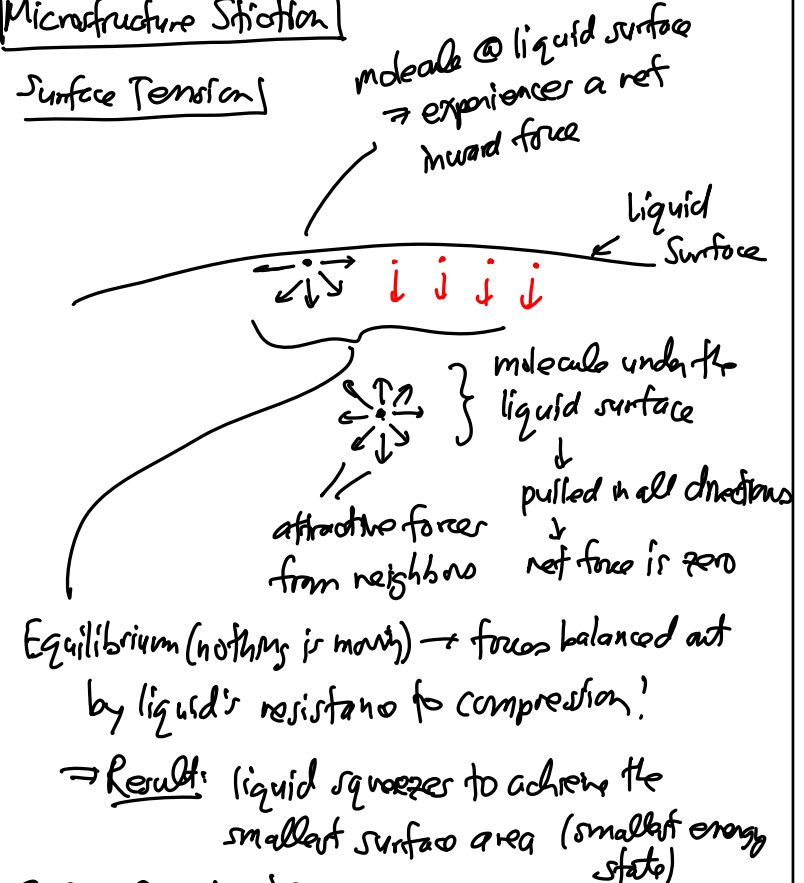 Microstructure Stiction
Surface Tension
molecule @ liquid surface
⇒ experiences a net
inward force
liquid
surface
molecule under the
liquid surface
↓
pulled in all directions
↓
net force is zero
attractive forces
from neighbors
Equilibrium (nothing is moving) → forces balanced out
by liquid's resistance to compression!
⇒ Result: liquid squeezes to achieve the
smallest surface area (smallest energy
state)